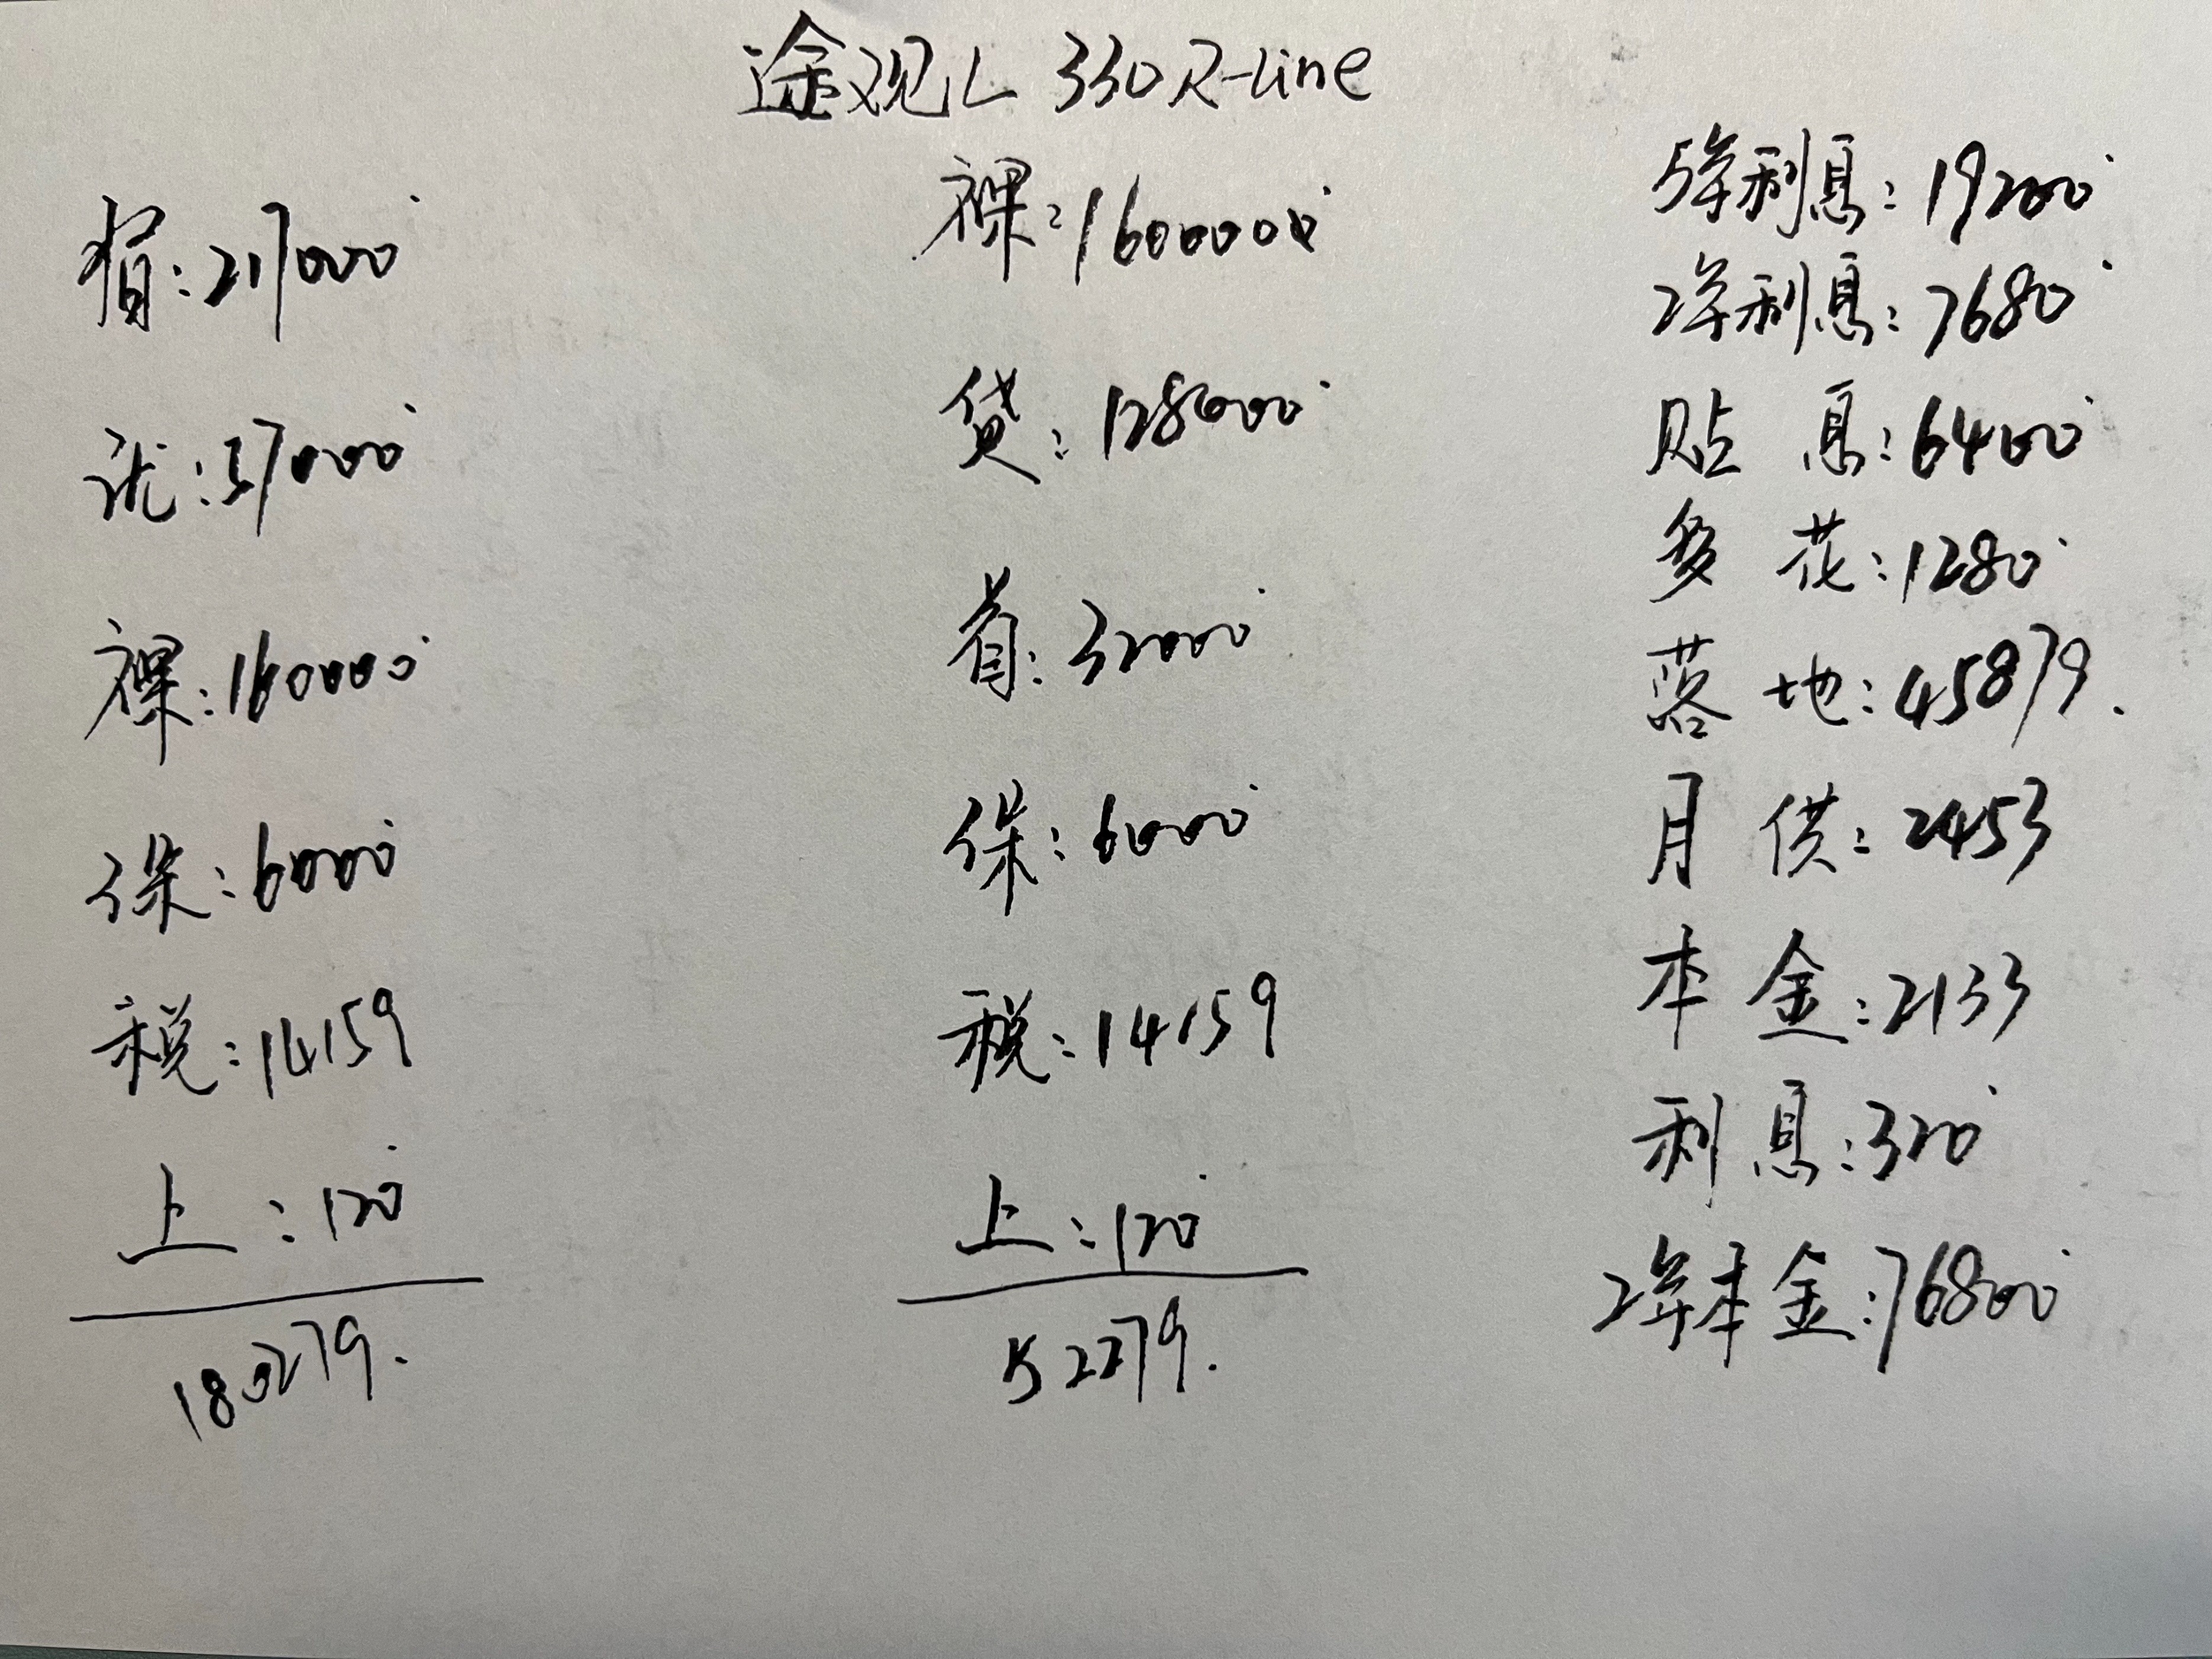 途观L 330 R-Line
指:217000
优:57000
裸:160000
保:6000
税:14159
上:120
180279.
裸:1600000
贷:128000
首:32000
保:6000
税:14159
上:120
52279.
5年利息:19200
2年利息:7680
贴息:6400
多花:1280
落地:45879.
月供:2453
本金:2133
利息:320
2年本金:76800